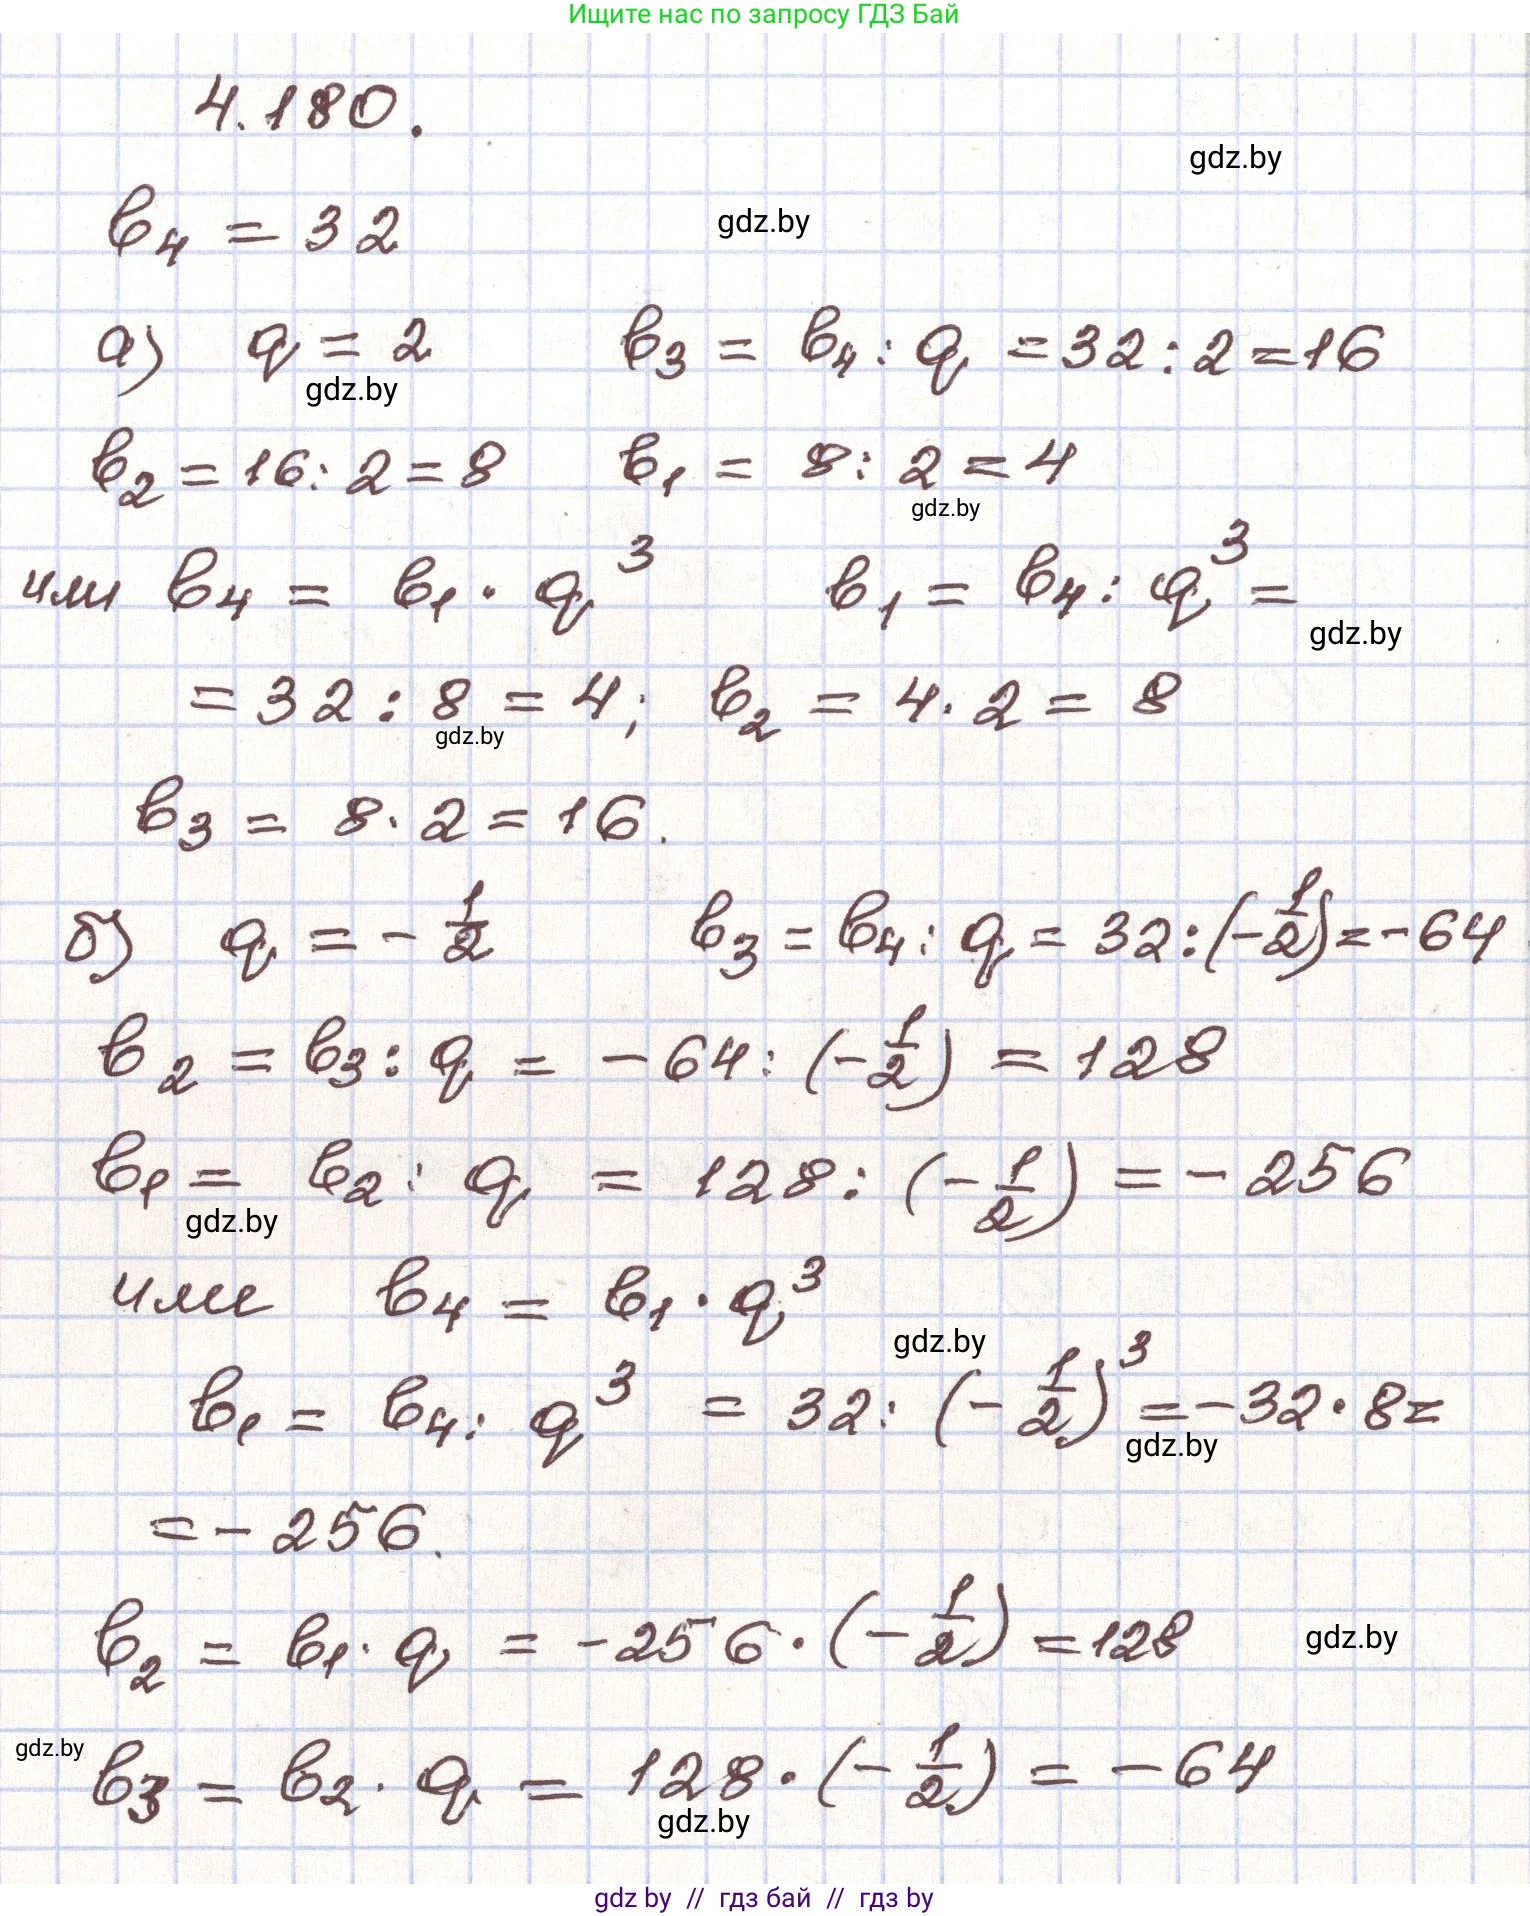 Ищите нас по запросу ГДЗ Бай
4.180.
gdz.by
b₄ = 32
gdz.by
а) q = 2 b₃ = b₄ : q = 32 : 2 = 16
gdz.by
b₂ = 16 : 2 = 8 b₁ = 8 : 2 = 4
gdz.by
или b₄ = b₁ · q³ b₁ = b₄ : q³ =
gdz.by
= 32 : 8 = 4; b₂ = 4 · 2 = 8
gdz.by
b₃ = 8 · 2 = 16.
б) q = - 1/2 b₃ = b₄ : q = 32 : (- 1/2) = - 64
b₂ = b₃ : q = - 64 : (- 1/2) = 128
b₁ = b₂ : q = 128 : (- 1/2) = - 256
gdz.by
или b₄ = b₁ · q³
gdz.by
b₁ = b₄ : q³ = 32 : (- 1/2)³ = - 32 · 8 =
gdz.by
= - 256.
b₂ = b₁ · q = - 256 · (- 1/2) = 128
gdz.by
gdz.by
b₃ = b₂ · q = 128 · (- 1/2) = - 64
gdz.by
gdz by // гдз бай // гдз by